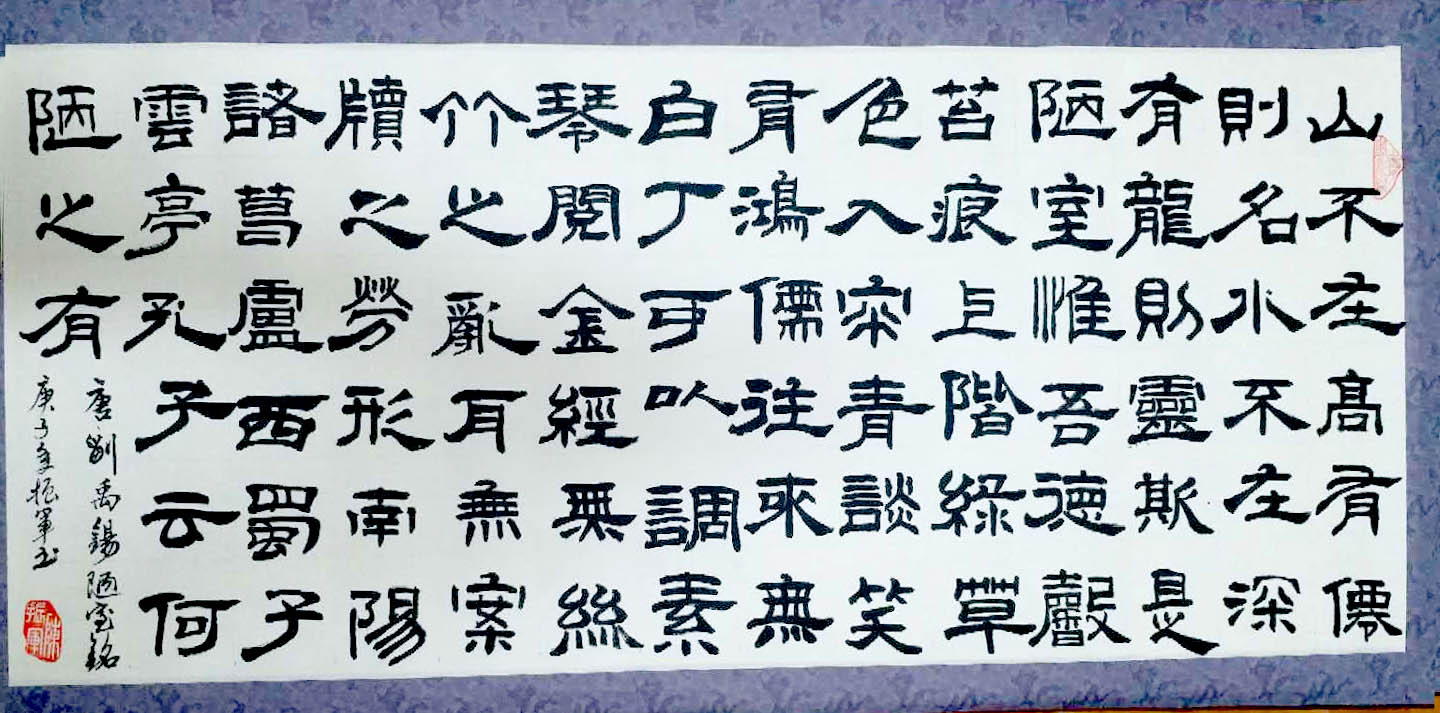 山不在高有僊
則名水不在深
有龍則靈斯是
陋室惟吾德馨
苔痕上階綠草
色入帘青談笑
有鴻儒往來無
白丁可以調素
琴閱金經無絲
竹之亂耳無案
牘之勞形南陽
諸葛盧西蜀子
雲亭孔子云何
陋之有
唐劉禹錫陋室銘
庚子年振軍书
陳振軍